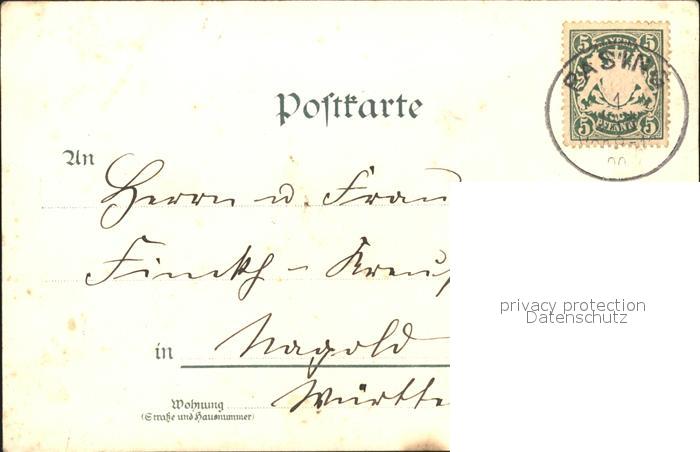 5 BAYERN 5
PASING
1
5 PFENNIG 5
00
Postkarte
An
Herrn u. Frau
Finckh - Kreus
privacy protection
Datenschutz
in Nagold
Württe
Wohnung
(Straße und Hausnummer)